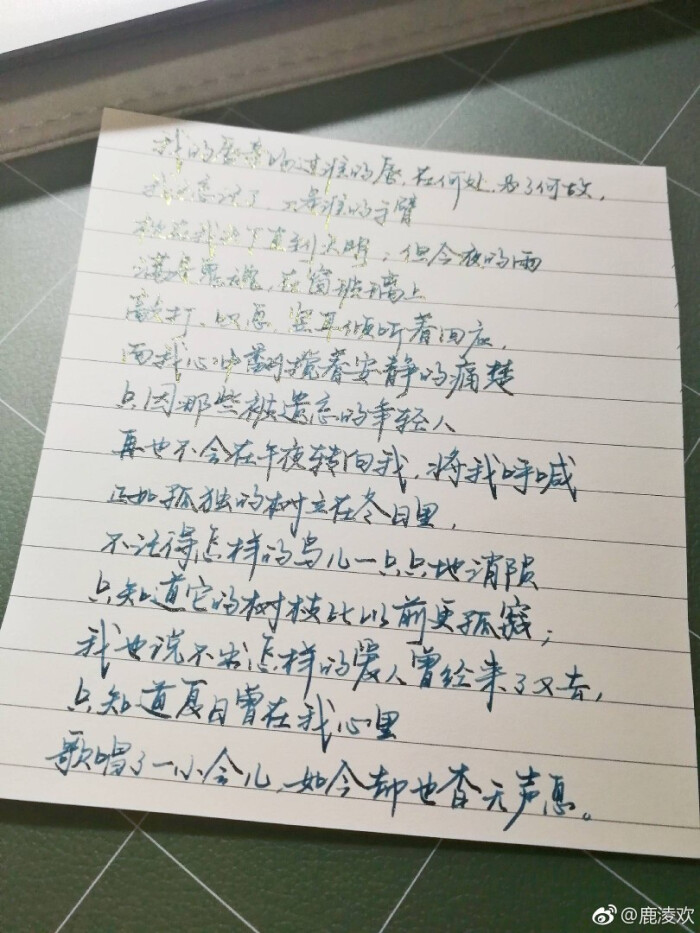 我的唇亲吻过谁的唇，在何处，为了何故，
我已忘记了，又是谁的手臂
枕在我头下直到天明，但今夜的雨
满是鬼魂，在窗玻璃上
敲打，叹息，望耳倾听着回应，
而我心中翻搅着安静的痛楚
只因那些被遗忘的年轻人
再也不会在午夜转向我，将我呼喊
正如孤独的树立在冬日里，
不记得怎样的鸟儿一只只地消陨
只知道它的树枝比以前更孤寂；
我也说不出怎样的爱人曾经来了又去，
只知道夏日曾在我心里
歌唱了一小会儿，如今却也杳无声息。
@鹿凌欢